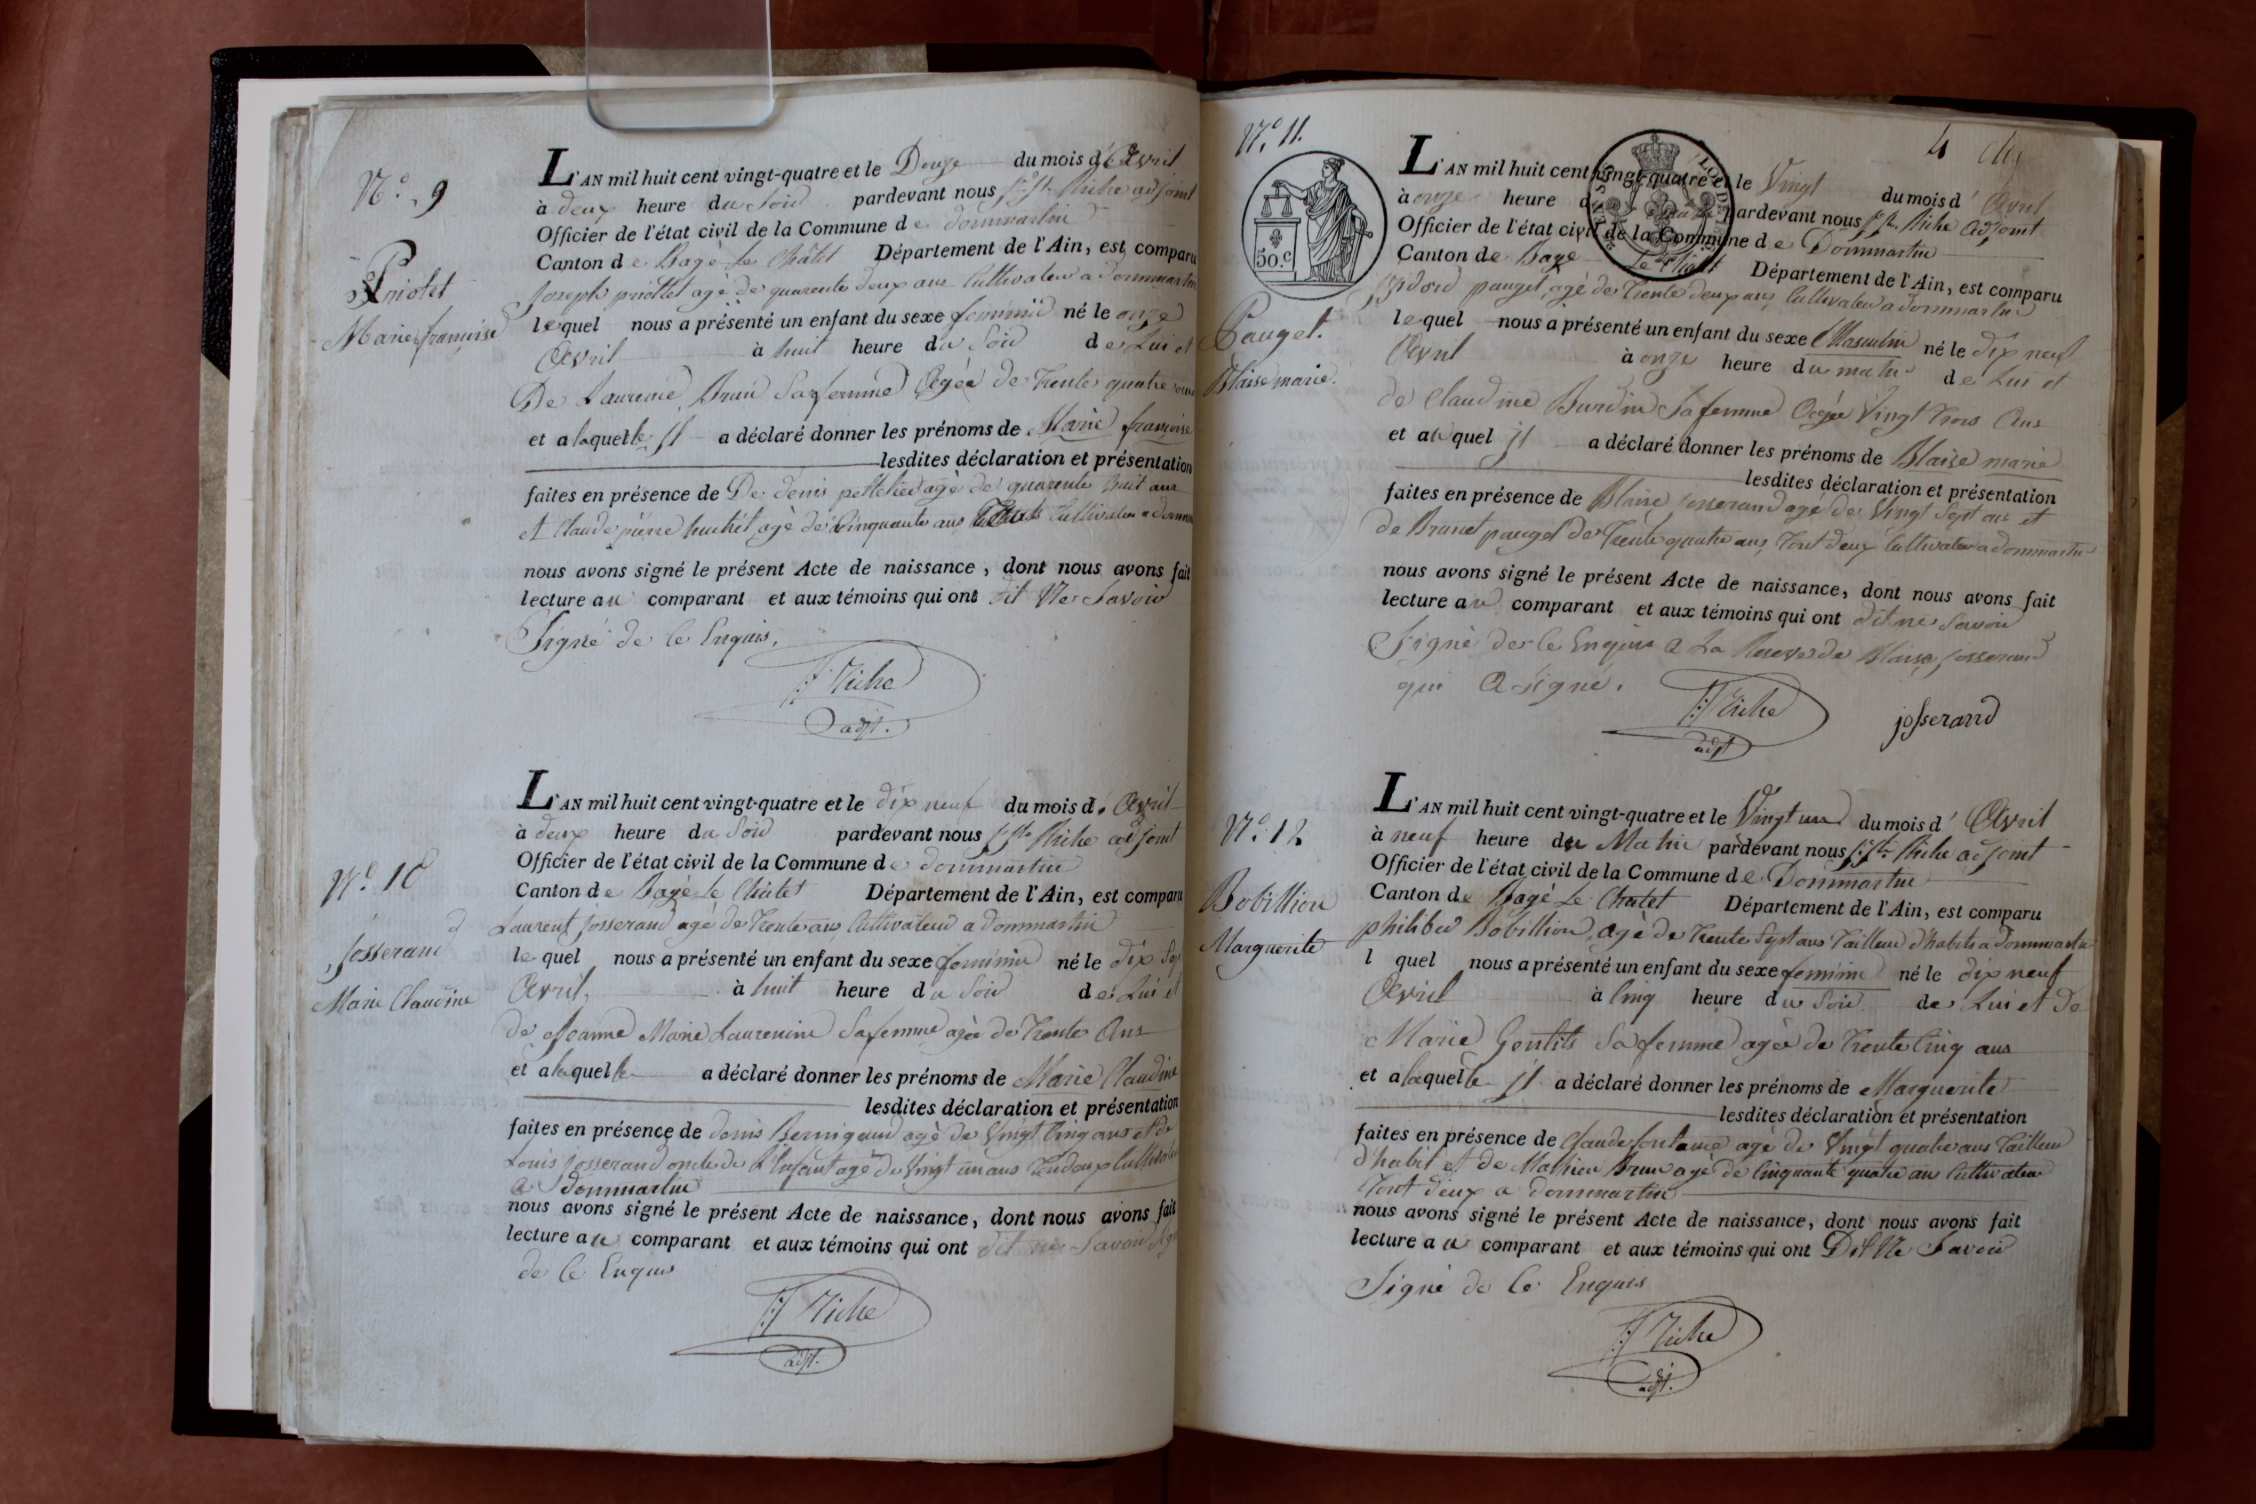 N.° 9
Priolet
Marie françoise
L'AN mil huit cent vingt-quatre et le Douze du mois d'Avril
à deux heure du Soir pardevant nous Riche adjoint
Officier de l'état civil de la Commune de dommartin
Canton de Bagé le Châtel Département de l'Ain, est comparu
Joseph priollet agé de quarente deux ans Cultivateur a dommartin
lequel nous a présenté un enfant du sexe feminin né le onze
Avril à huit heure du Soir de Lui et
De Laurence Brun Sa femme Agée de trente quatre ans
et a laquelle Il a déclaré donner les prénoms de Marie françoise
lesdites déclaration et présentation
faites en présence de De denis pelletier agé de quarente huit ans
et Claude pierre huchet agé de Cinquante ans Cultivateur a dommartin
nous avons signé le présent Acte de naissance, dont nous avons fait
lecture au comparant et aux témoins qui ont dit Ne Savoir
Signé de Ce Enquis.
Riche
adjt.
N.° 10
Josserand
Marie Claudine
L'AN mil huit cent vingt-quatre et le dix neuf du mois d'Avril
à deux heure du Soir pardevant nous Riche adjoint
Officier de l'état civil de la Commune de dommartin
Canton de Bagé le Châtel Département de l'Ain, est comparu
Laurent Josserand agé de trente ans Cultivateur a Dommartin
lequel nous a présenté un enfant du sexe feminin né le dix Sept
Avril, à huit heure du Soir de Lui et
de Jeanne Marie Laurencine Sa femme agée de trente Ans
et a laquelle a déclaré donner les prénoms de Marie Claudine
lesdites déclaration et présentation
faites en présence de denis agé de Vingt Cinq ans et de
Louis Josserand oncle de L'Enfant agé de Vingt un ans
a dommartin
nous avons signé le présent Acte de naissance, dont nous avons fait
lecture au comparant et aux témoins qui ont dit ne Savoir Signé
de Ce Enquis
Riche
adjt.
N.° 11.
50.c
4
Pauget.
Blaise marie.
L'AN mil huit cent vingt-quatre et le Vingt du mois d'Avril
à onze heure du matin pardevant nous Riche adjoint
Officier de l'état civil de la Commune de Dommartin
Canton de Bage le Châtel Département de l'Ain, est comparu
pauget, agé de trente deux ans, Cultivateur a dommartin
lequel nous a présenté un enfant du sexe Masculin né le dix neuf
Avril à onze heure du matin de Lui et
de Claudine Burdin Sa femme Agée Vingt trois Ans
et au quel il a déclaré donner les prénoms de Blaise marie
lesdites déclaration et présentation
faites en présence de Blaise Josserand agé de Vingt Sept ans et
de Brunet pauget de trente quatre ans, tout deux Cultivateur a dommartin
nous avons signé le présent Acte de naissance, dont nous avons fait
lecture au comparant et aux témoins qui ont dit ne Savoir
Signé de Ce Enquis a La Reserve de Blaise Josserand
qui A Signé.
Riche
adjt
josserand
N.° 12
Bobillion
Marguerite
L'AN mil huit cent vingt-quatre et le Vingt un du mois d'Avril
à neuf heure du Matin pardevant nous Riche adjoint
Officier de l'état civil de la Commune de Dommartin
Canton de Bagé Le Chatel Département de l'Ain, est comparu
philiber Bobillion, agé de trente Sept ans tailleur d'habits a Dommartin
l quel nous a présenté un enfant du sexe feminin né le dix neuf
Avril à Cinq heure du Soir de Lui et de
Marie Gentils Sa femme agée de trente Cinq ans
et a laquelle Il a déclaré donner les prénoms de Marguerite
lesdites déclaration et présentation
faites en présence de Claude fontaine agé de Vingt quatre ans tailleur
d'habit et de Mathieu Brun agé de Cinquante quatre ans Cultivateur
tout deux a dommartin
nous avons signé le présent Acte de naissance, dont nous avons fait
lecture au comparant et aux témoins qui ont Dit Ne Savoir
Signé de Ce Enquis
Riche
adjt.